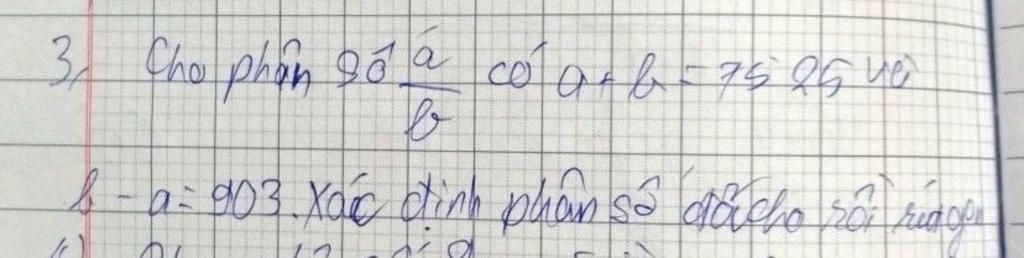 3, Cho phân số a/b có a + b = 7525 và
b - a = 903. Xác định phân số đã cho rồi rút gọn